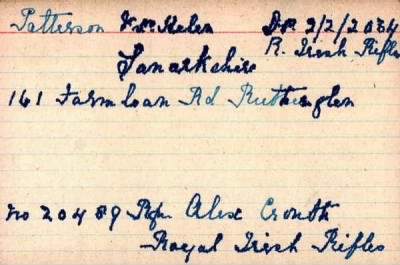 Patterson Mrs Helen DR 2/2/2034
R. Irish Rifles
Lanarkshire
161 Farmloan Rd Rutherglen
No 20489 Rfn Alex Crouth
Royal Irish Rifles